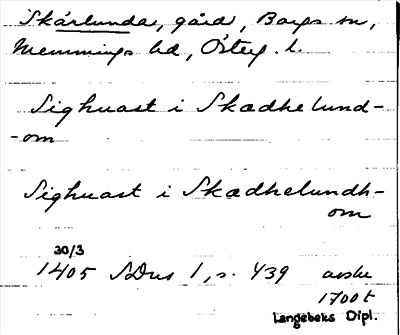 Skärlunda, gård, Borgs sn,
Memmings hd, Österg. l.
Sighuast i Skædhelund-
-om
Sighuast i Skædhelundh-
om
30/3
1405 SDns 1, s. 439 avskr
1700t
Langebeks Dipl.